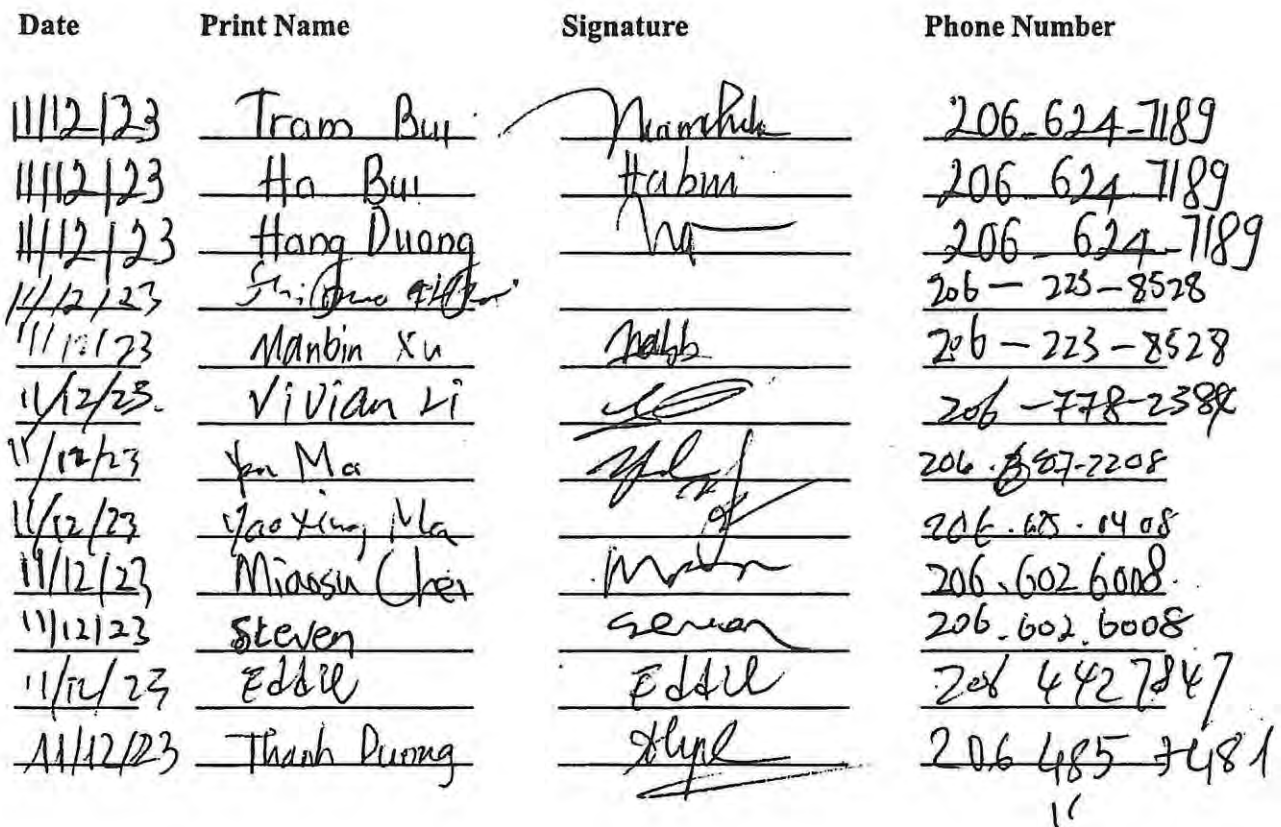 Date Print Name Signature Phone Number
11/12/23 Tram Bui 206-624-7189
11/12/23 Ha Bui Habui 206 624 7189
11/12/23 Hang Duong 206-624-7189
11/12/23 206-223-8528
11/12/23 Manbin Xu 206-223-8528
11/12/23. Vivian Li 206-778-2384
11/12/23 Yen Ma
11/12/23 Yao Xing Ma
11/12/23 Miaosu Chen 206.602 6008
11/12/23 Steven 206.602.6008
11/12/23 Eddie Eddie 206 442 7847
11/12/23 Thanh Duong 206 485 7481